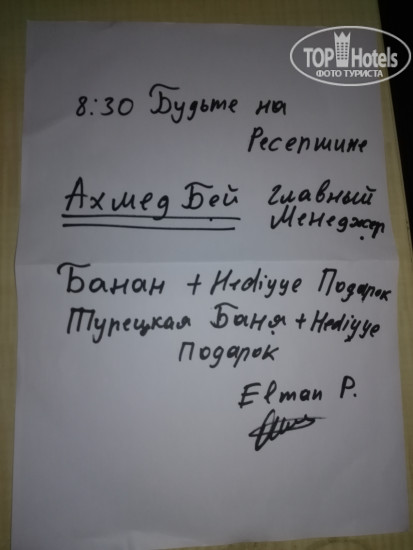 TOP Hotels
ФОТО ТУРИСТА
8:30 Будьте на
Ресепшине
Ахмед Бей главный
Менеджер
Банан + Hediyye Подарок
Турецкая Баня + Hediyye
Подарок
Elman P.